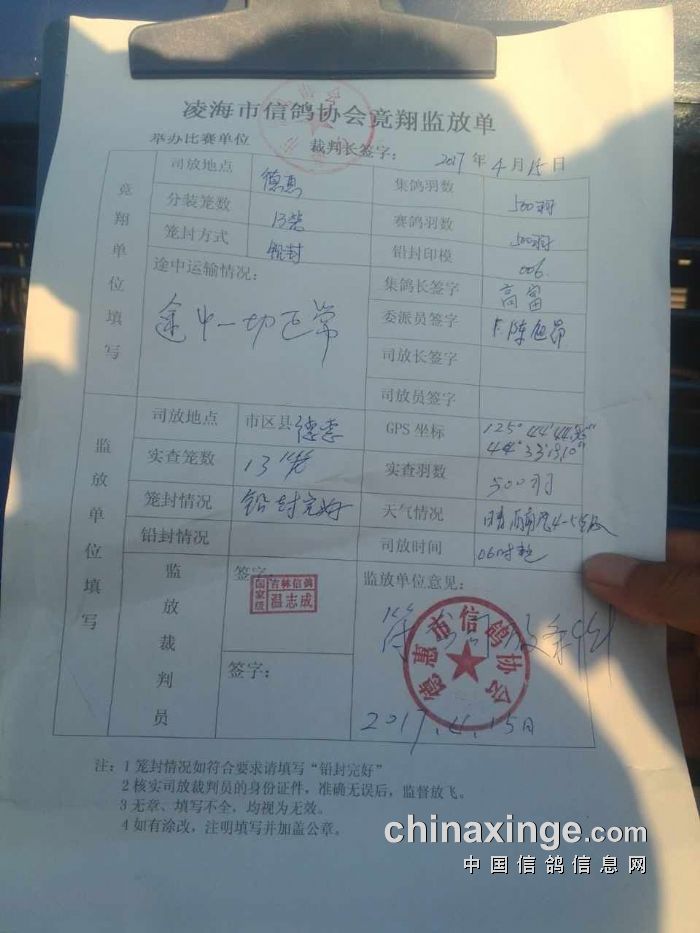 凌海市信鸽协会竟翔监放单
举办比赛单位 裁判长签字： 2017 年 4 月 15 日
竟翔单位填写
司放地点 德惠 集鸽羽数 500羽
分装笼数 13笼 赛鸽羽数 500羽
笼封方式 铅封 铅封印模 006.
途中运输情况：
途中一切正常
集鸽长签字 高富
委派员签字
司放长签字
司放员签字
监放单位填写
司放地点 市区县 德惠 GPS 坐标 125° 44′
44° 33′
实查笼数 13笼 实查羽数 500羽
笼封情况 铅封完好 天气情况 晴 西南风4-5级
铅封情况 司放时间 06时
监放裁判员
签字：
国家级 吉林信鸽 温志成
签字：
监放单位意见：
德惠市信鸽协会
2017.4.15日
注：1 笼封情况如符合要求请填写“铅封完好”
2 核实司放裁判员的身份证件，准确无误后，监督放飞。
3 无章、填写不全，均视为无效。
4 如有涂改，注明填写并加盖公章。
chinaxinge.com
中国信鸽信息网